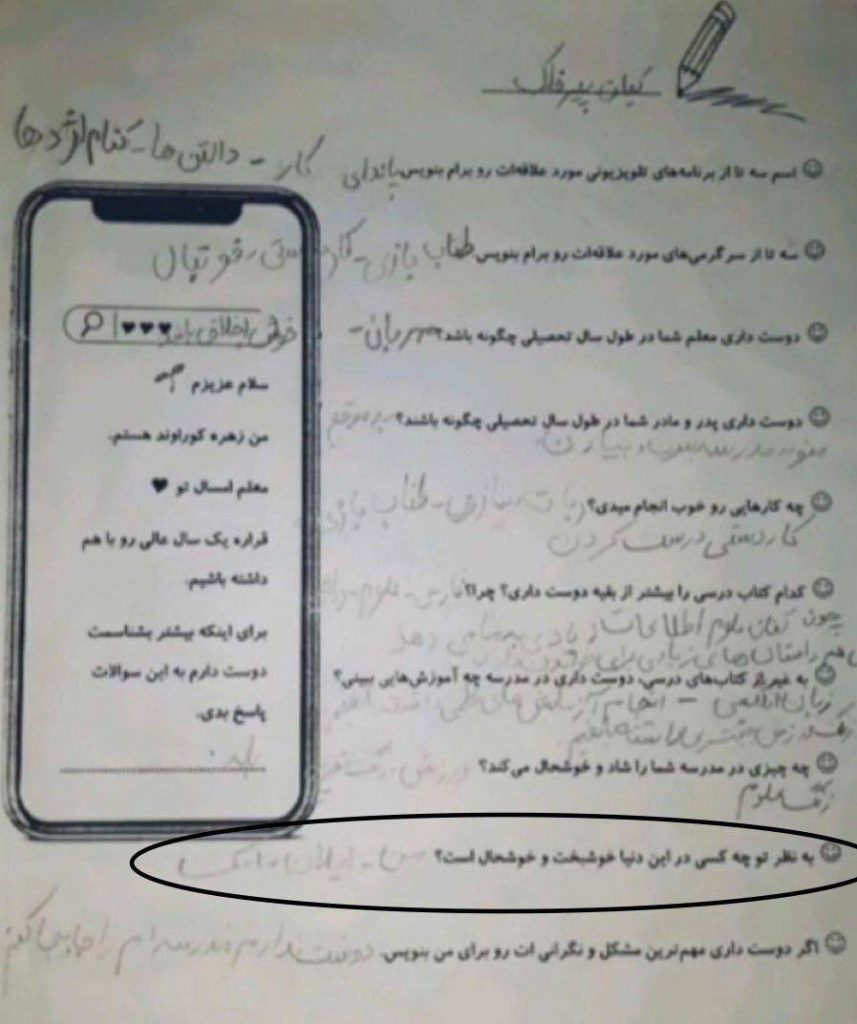 کیان پیرفلک
اسم سه تا از برنامه‌های تلویزیونی مورد علاقه‌ات رو برام بنویس پاندای
کار - دالتن ها - کنام اژدها
سه تا از سرگرمی‌های مورد علاقه‌ات رو برام بنویس طناب بازی - کاردستی - فوتبال
دوست داری معلم شما در طول سال تحصیلی چگونه باشد؟ مهربان -
خوش اخلاق باشد
دوست داری پدر و مادر شما در طول سال تحصیلی چگونه باشند؟ به موقع
چه کارهایی رو خوب انجام میدی؟ ربات سازی - طناب بازی
کاردستی درست کردن
کدام کتاب درسی را بیشتر از بقیه دوست داری؟ چرا؟ فارسی - علوم
چون کتاب علوم اطلاعات زیادی به ما می دهد
هم داستان های زیادی برای
به غیر از کتاب‌های درسی، دوست داری در مدرسه چه آموزش‌هایی ببینی؟
زبان انگلیسی - انجام آزمایش های علمی
زنگ ورزش بیشتری داشته باشیم
چه چیزی در مدرسه شما را شاد و خوشحال می‌کند؟ ورزش - زنگ
زنگ علوم
به نظر تو چه کسی در این دنیا خوشبخت و خوشحال است؟ من - ایلان ماسک
اگر دوست داری مهم‌ترین مشکل و نگرانی ات رو برای من بنویس. دوست ندارم مدرسه ام را جابجا کنم
♥♥♥
سلام عزیزم
من زهره کوراوند هستم.
معلم امسال تو ♥
قراره یک سال عالی رو با هم
داشته باشیم.
برای اینکه بیشتر بشناسمت
دوست دارم به این سوالات
پاسخ بدی.